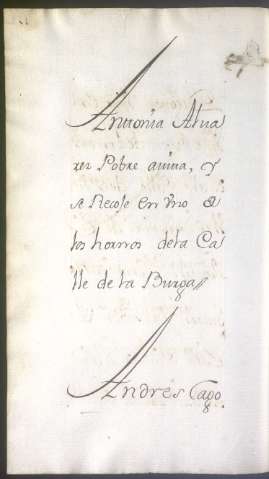 Antonia Alva
rez Pobre avina, y
se Recose en vno de
los horros dela Ca
lle de la Burga
Andrés Cago